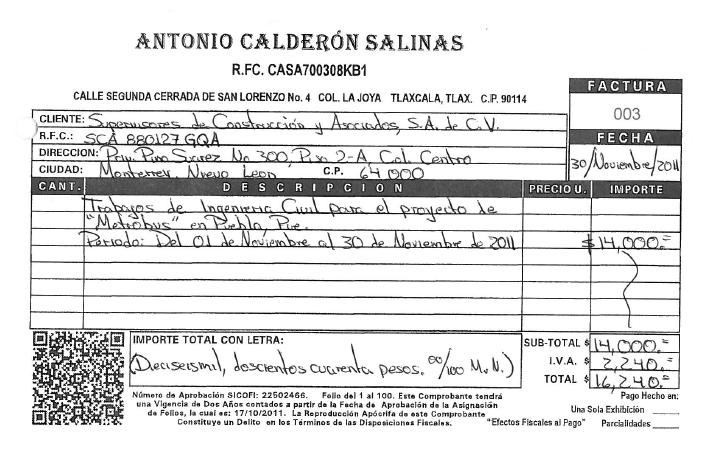 ANTONIO CALDERÓN SALINAS
R.FC. CASA700308KB1
CALLE SEGUNDA CERRADA DE SAN LORENZO No. 4 COL. LA JOYA TLAXCALA, TLAX. C.P. 90114
FACTURA
003
FECHA
30/Noviembre/2011
CLIENTE: Supervisores de Construcción y Asociados, S.A. de C.V.
R.F.C.: SCA 880127 GQA
DIRECCION: Priv. Pino Suarez No 300, Piso 2-A, Col. Centro
CIUDAD: Monterrey, Nuevo Leon C.P. 64000
CANT. DESCRIPCION PRECIO U. IMPORTE
Trabajos de Ingenieria Civil para el proyecto de
"Metrobus" en Puebla, Pue.
Periodo: Del 01 de Noviembre al 30 de Noviembre de 2011 $14,000.=
IMPORTE TOTAL CON LETRA:
(Dieciseismil, doscientos cuarenta pesos. 00/100 M.N.)
SUB-TOTAL $ 14,000.=
I.V.A. $ 2,240.=
TOTAL $ 16,240.=
Número de Aprobación SICOFI: 22502466. Folio del 1 al 100. Este Comprobante tendrá
una Vigencia de Dos Años contados a partir de la Fecha de Aprobación de la Asignación
de Folios, la cual es: 17/10/2011. La Reproducción Apócrifa de este Comprobante
Constituye un Delito en los Términos de las Disposiciones Fiscales.
"Efectos Fiscales al Pago"
Pago Hecho en:
Una Sola Exhibición
Parcialidades